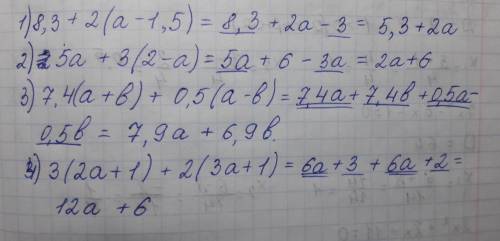 1) 8,3 + 2(a - 1,5) = 8,3 + 2a - 3 = 5,3 + 2a
2) 5a + 3(2 - a) = 5a + 6 - 3a = 2a + 6
3) 7,4(a + в) + 0,5(a - в) = 7,4a + 7,4в + 0,5a -
0,5в = 7,9a + 6,9в.
4) 3(2a + 1) + 2(3a + 1) = 6a + 3 + 6a + 2 =
12a + 6